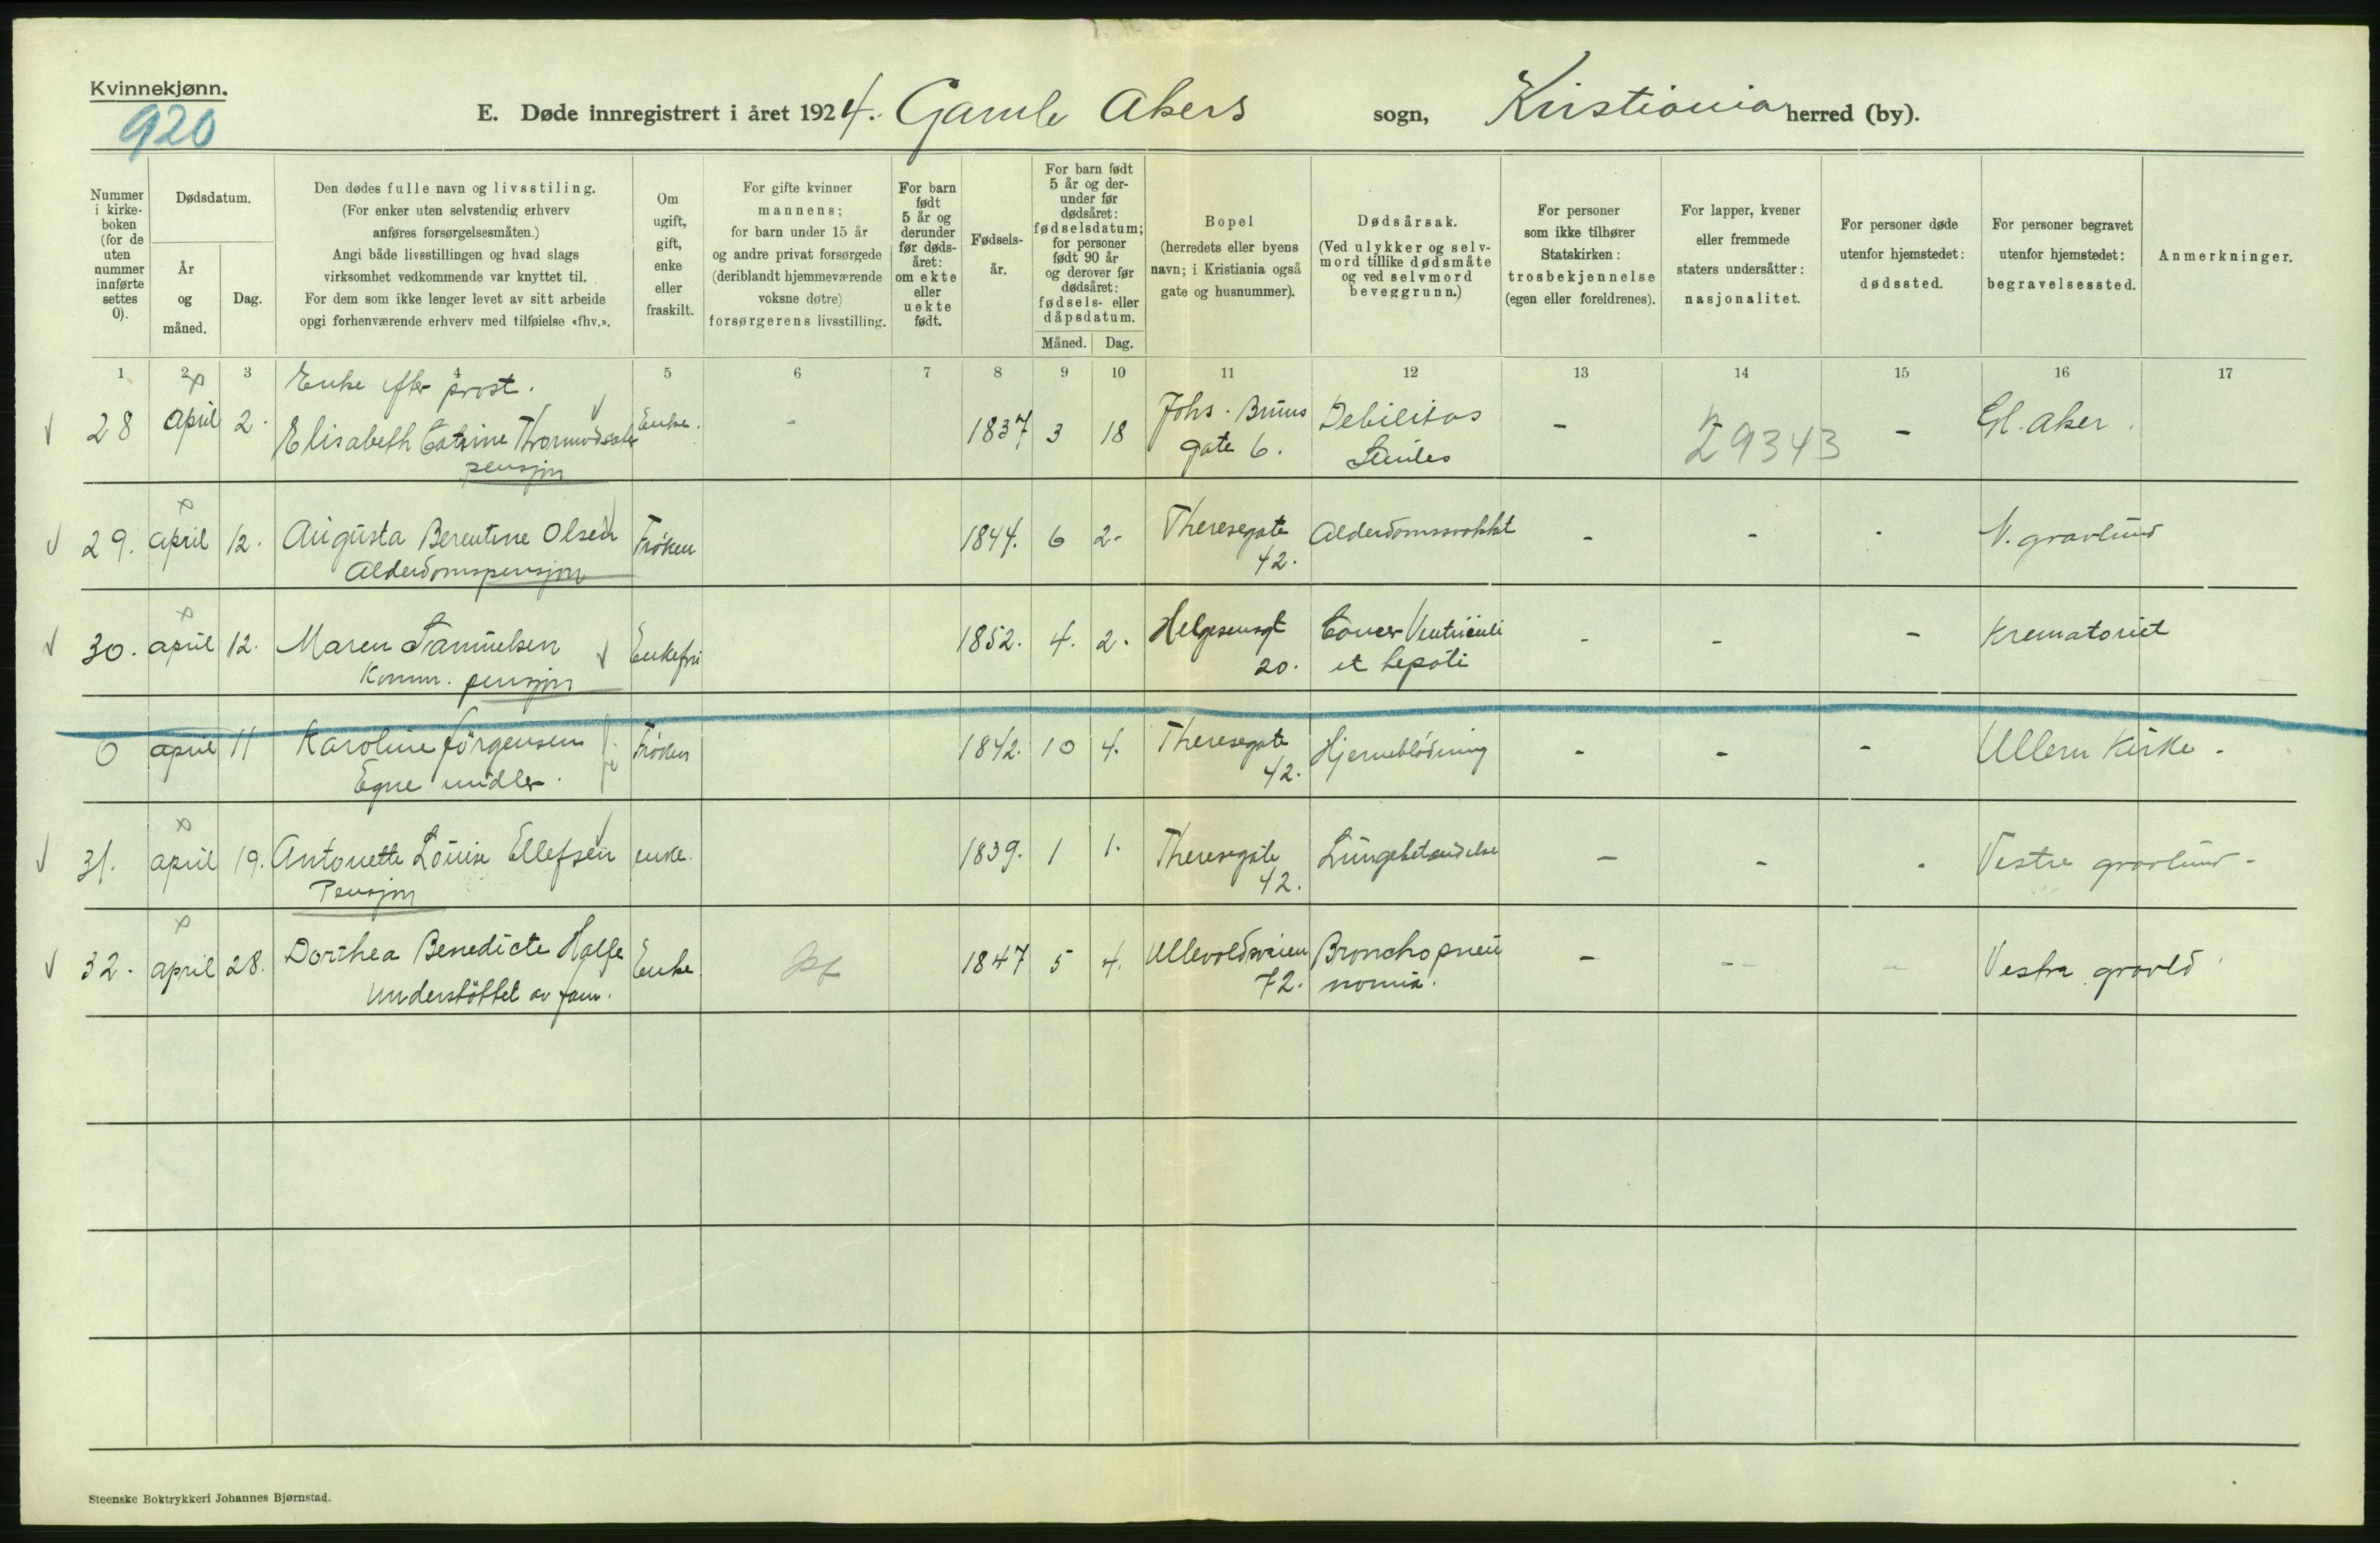 Kvinnekjønn.
920
E. Døde innregistrert i året 1924. Gamle Akers sogn, Kristiania herred (by).
Nummer i kirkeboken (for de uten nummer innførte settes 0).
Dødsdatum.
År og måned.
Dag.
Den dødes fulle navn og livsstiling.
(For enker uten selvstendig erhverv
anføres forsørgelsesmåten.)
Angi både livsstillingen og hvad slags
virksomhet vedkommende var knyttet til.
For dem som ikke lenger levet av sitt arbeide
opgi forhenværende erhverv med tilføielse «fhv.».
Om ugift, gift, enke eller fraskilt.
For gifte kvinner
mannens;
for barn under 15 år
og andre privat forsørgede
(deriblandt hjemmeværende
voksne døtre)
forsørgerens livsstilling.
For barn født 5 år og derunder før dødsåret: om ekte eller uekte født.
Fødselsår.
For barn født 5 år og derunder før dødsåret: fødselsdatum; for personer født 90 år og derover før dødsåret: fødsels- eller dåpsdatum.
Måned. Dag.
Bopel
(herredets eller byens
navn; i Kristiania også
gate og husnummer).
Dødsårsak.
(Ved ulykker og selvmord tillike dødsmåte
og ved selvmord
beveggrunn.)
For personer
som ikke tilhører
Statskirken:
trosbekjennelse
(egen eller foreldrenes).
For lapper, kvener
eller fremmede
staters undersåtter:
nasjonalitet.
For personer døde
utenfor hjemstedet:
dødssted.
For personer begravet
utenfor hjemstedet:
begravelsessted.
Anmerkninger.
1 2 3 4 5 6 7 8 9 10 11 12 13 14 15 16 17
Enke efter prost.
28 april 2. Elisabeth Catrine Enke. - 1837 3 18 Johs. Bruns gate 6. Debilitas Seniles - 29343 - Gl. Aker.
pensjon
29. april 12. Augusta Berentine Olsen Frøken 1844. 6 2- Theresegate 42. Alderdomssvakhet - - - V. gravlund
Alderdomspensjon
30. april 12. Maren Samuelsen Enkefru 1852. 4. 2. Helgesensgt 20. Cancer Ventriculi et hepati - - - Krematoriet
Komm. pensjon
0 april 11 Karoline Jörgensen Frøken 1842. 10 4. Theresegate 42. Hjerneblödning - - - Ullern Kirke -
Egne midler.
31. april 19. Antonette Louise Ellefsen enke. 1839. 1 1. Theresegate 42. Lungebetændelse - - - Vestre gravlund -
Pensjon
32. april 28. Dorthea Benedicte Enke 1847 5 4. Ullevoldsveien 72. Bronchopneu nomia. - - - Vestre gravld
Understöttet av fam.
Steenske Boktrykkeri Johannes Bjørnstad.